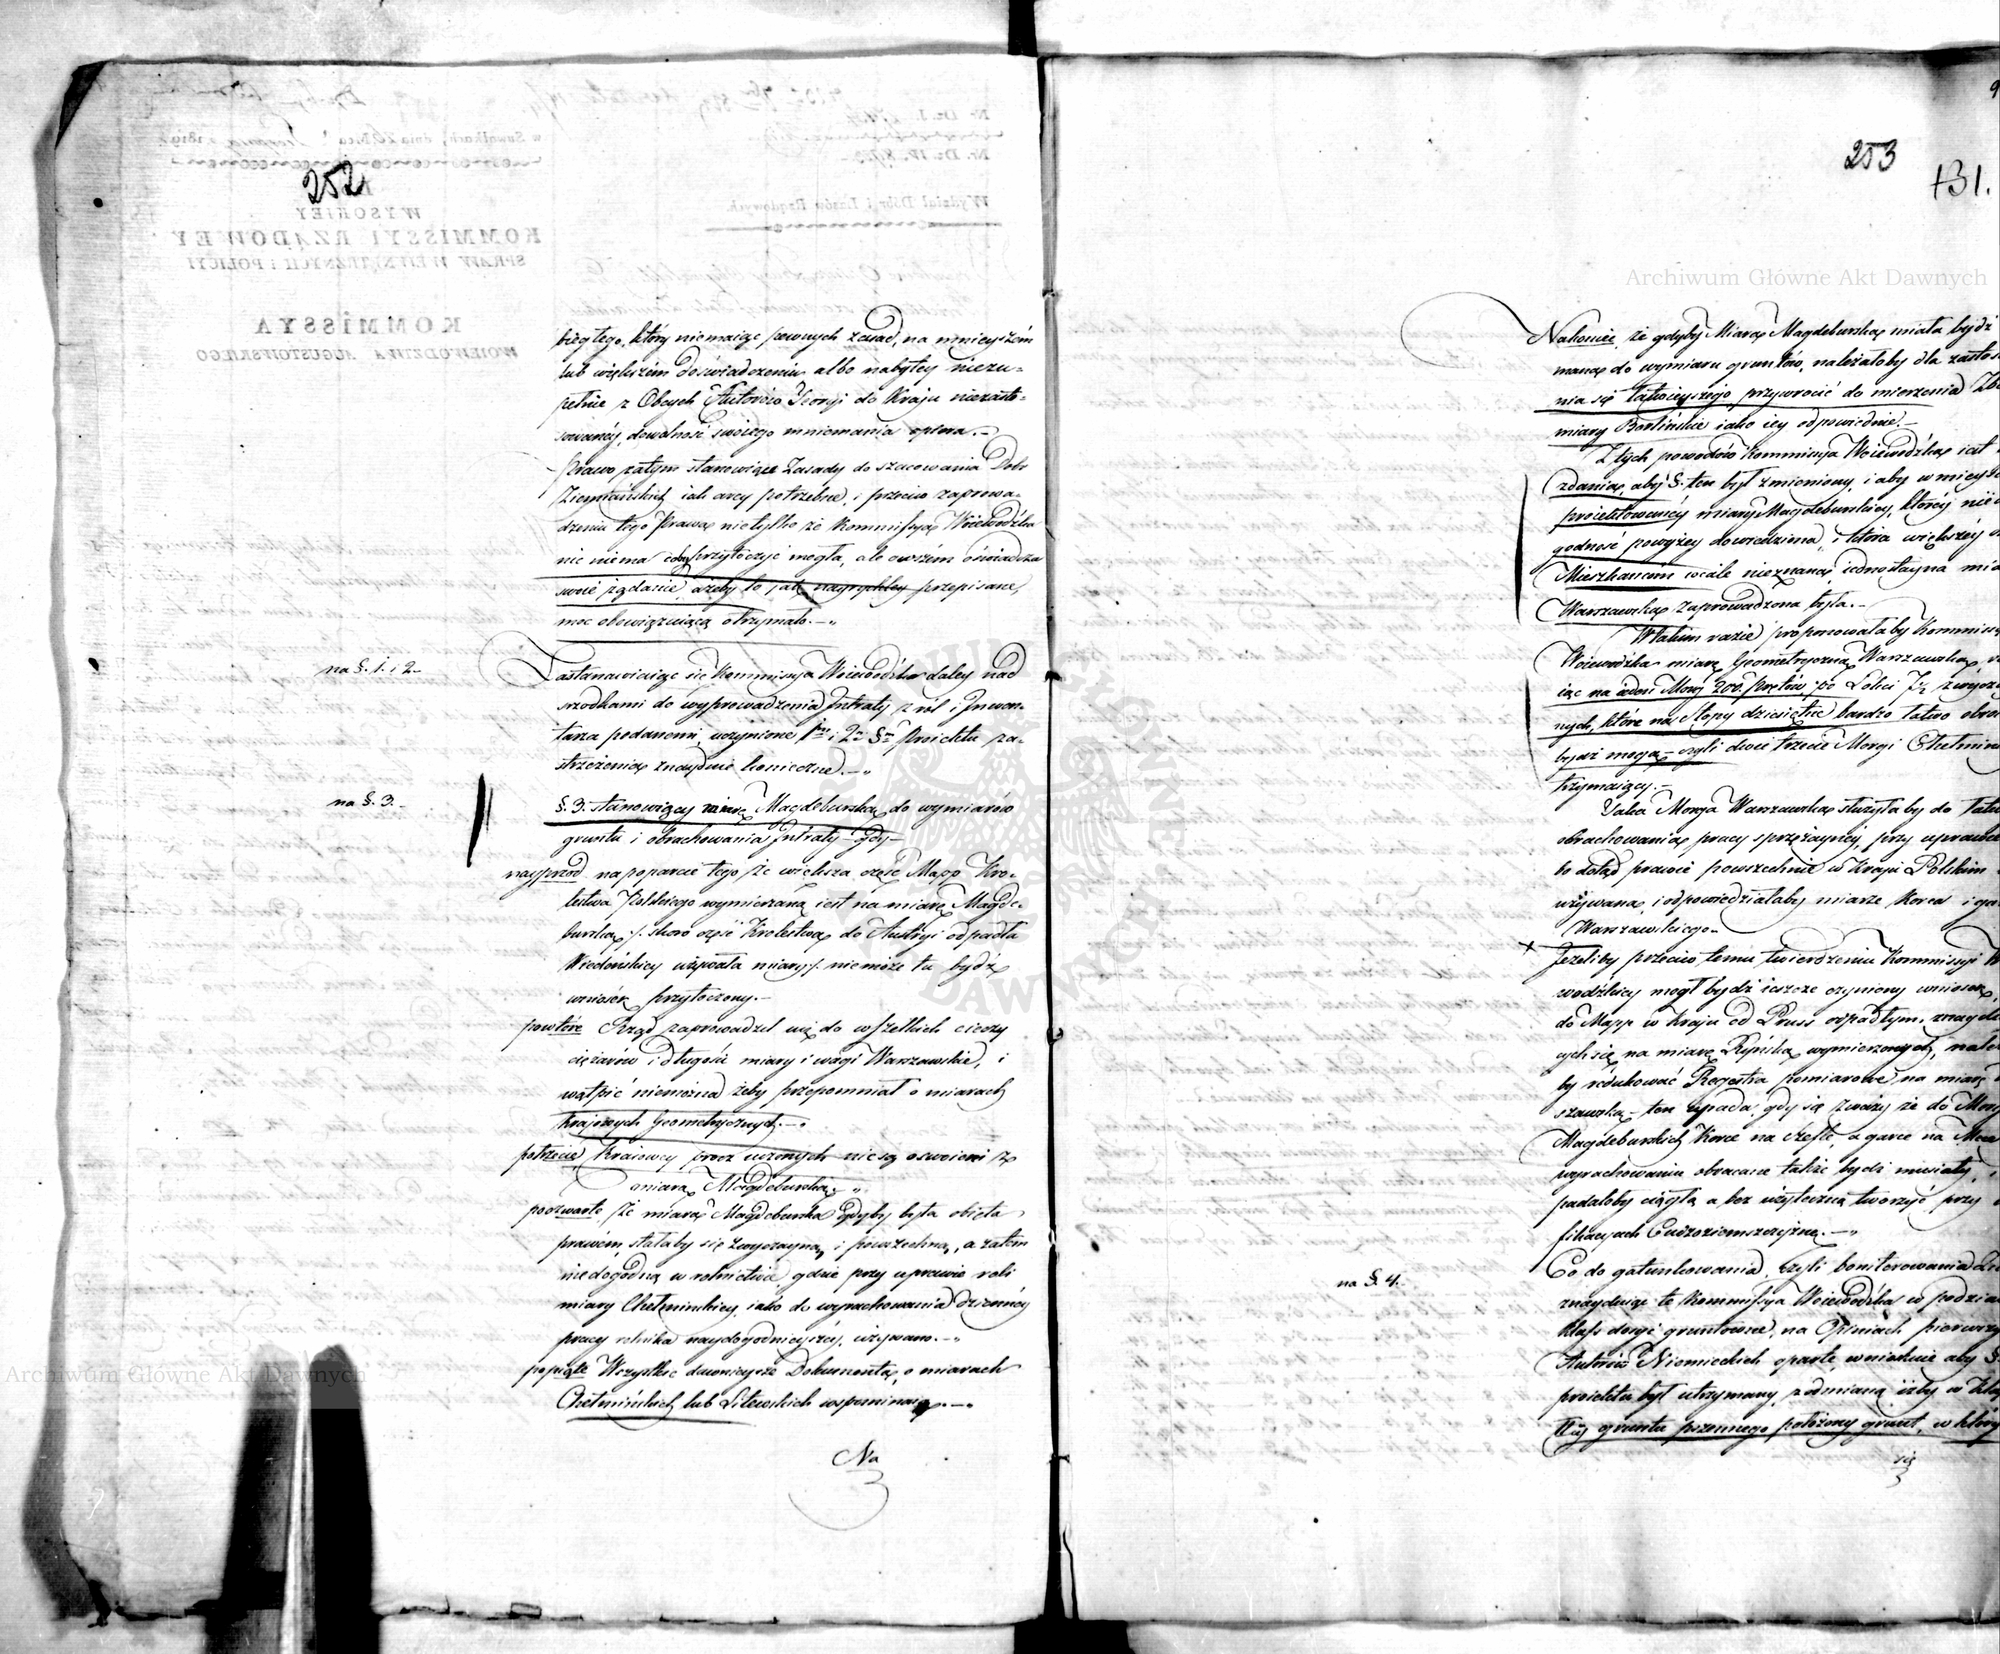 252
bieg tego, który niemaiąc pewnych zasad, na mnieyszém
lub większém doświadczeniu albo nabytey niezu-
pełnie z Obcych Autorów Teoryi do Kraju niezasto-
sowanéy, dowolność swoiego mniemania opiera.—
Prawo zatym stanowiące Zasady do szacowania Dóbr
Ziemiańskich iak arcy potrzebne, i przeciw zaprowa-
dzeniu tego Prawa nietylko że Kommissya Woiewódzka
nic niema coby przytoczyć mogła, ale owszém oświadcza
swoie żądanie, ażeby to jak nayrychley przepisane,
moc obowiązuiącą otrzymało.—
na §. 1. i 2.
Zastanawiaiąc się Kommissya Woiewódzka daley nad
srzodkami do wyprowadzenia Intraty z ról i Inwen-
tarza podanemi, uczynione 1m i 2m §m Proiektu za-
strzeżenia znayduie konieczne.—
na §. 3.
§. 3. stanowiący miarę Magdeburską do wymiarów
gruntu i obrachowania Intraty — gdy —
nayprzód na poparcie tego że większa część Mapp Kró-
lestwa Polskiego wymierzaną iest na miarę Magde-
burską, /: skoro część Królestwa do Austryi odpadła
Wiedeńskiey używała miary :/ niemoże tu bydź
wniosek przytoczony.—
powtóre Rząd zaprowadził iuż do wszelkich cieczy
ciężarów i długości miary i wagi Warszawskie, i
wątpić niemożna żeby przepomniał o miarach
krajowych Geometrycznych.—
potrzecie Kraiowcy prócz uczonych nie są oswoieni z
miarą Magdeburską.—
poczwarte Że miara Magdeburska gdyby była obięta
prawem, stałaby się zwyczayną, i powszechną, a zatém
niedogodną w rolnictwie, gdzie przy uprawie roli
miary Chełmińskiey, iako do wyrachowania dzienney
pracy rolnika naydogodnieyszéy, używano.—
popiąte Wszystkie dawnieysze Dokumenta, o miarach
Chełmińskich lub Litewskich wspominaią.—
Na
253
131.
Archiwum Główne Akt Dawnych
Nakoniec, że gdyby Miara Magdeburska miała bydź
maną do wymiaru gruntów, należałoby dla
nia się łatwieyszego przywrócić do mierzenia
miary Berlińskie iako iey odpowiednie.—
Z tych powodów Kommissya Woiewódzka iest
zdania, aby §. ten był zmieniony, i aby w mieysce
proiektowanéy miary Magdeburskiey, któréy nie
godność powyżey dowiedziona, i która większéy
Mieszkańcom wcale nieznana, iednostayna
Warszawska zaprowadzona była.—
W takim razie proponowałaby Kommissya
Woiewódzka miarę Geometryczną Warszawską,
iąc na ieden Morg 200. Prętów, po Łokci 7½
nych, które na Stopy dziesiętne bardzo łatwo
bydź mogą — czyli dwie trzecie Morgi
trzymaiący.—
Taka Morga Warszawska służyłaby do
obrachowania pracy sprzężayney, przy uprawie
bo dotąd prawie powszechnie w Kraju Polskim
używana, i odpowiedziałaby miarze Korca i
Warszawskiego.—
Jeżeliby przeciw temu twierdzeniu Kommissyi
wódzkiey mógł bydź ieszcze czyniony wniosek,
do Mapp w Kraju od Pruss odpadłym,
cych się na miarę Ryńską wymierzonych,
by redukować Regestra pomiarowe na miarę
szawską — ten upada, gdy się zważy że do
Magdeburskich Korce na Szefle, a garce na
wyrachowaniu obracane także bydź musiały,
padałoby ciągłą a bez użyteczną tworzyć przy
fikacyach Cudzoziemszczyznę.—
na §. 4.
Co do gatunkowania, czyli bonitorowania
znayduiąc te Kommissya Woiewódzka w
klass dosyć gruntowne, na Opiniach
Autorów Niemieckich oparte, wnioskuie aby §.
proiektu był utrzymany, z odmianą iżby w
IIéy gruntu pszennego położony grunt, w
się
Archiwum Główne Akt Dawnych